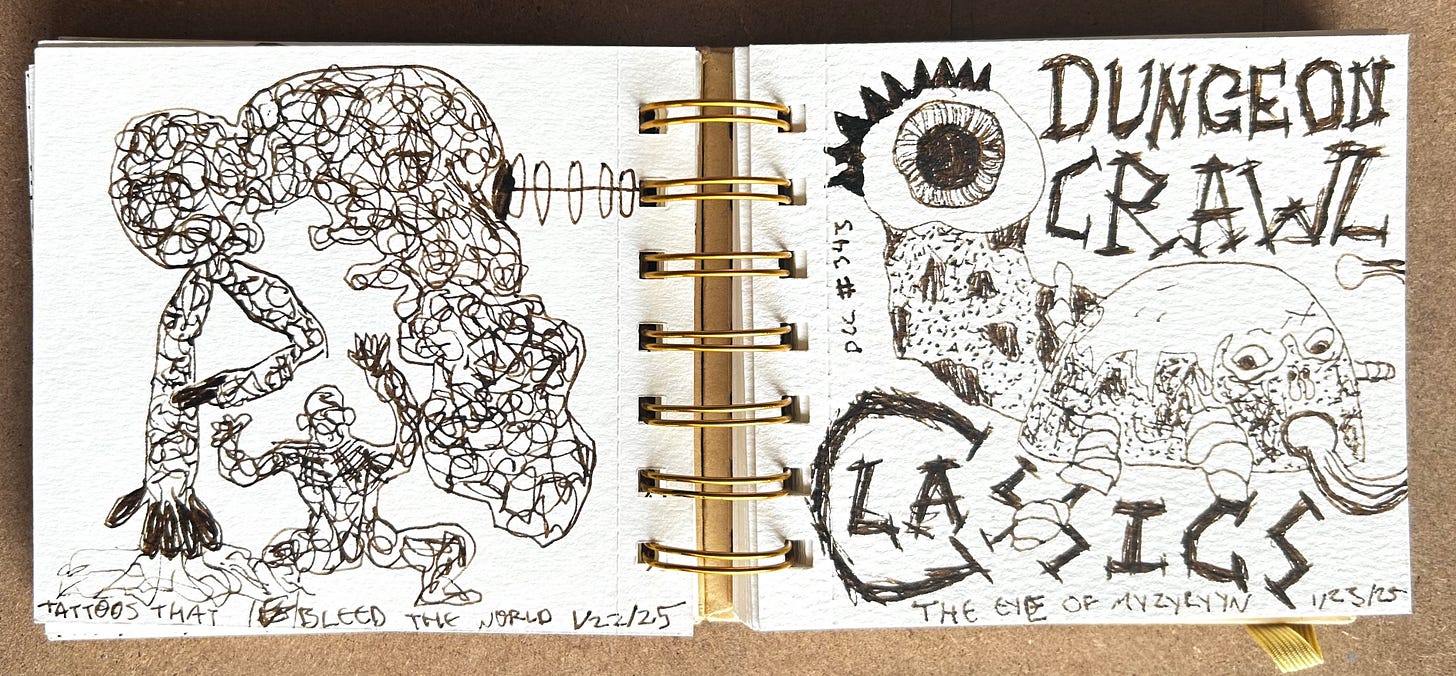 TATTOOS THAT BLEED THE WORLD 1/22/25
DUNGEON
CRAWL
DCC #343
CLASSICS
THE EYE OF MYZYRYYN 1/23/25